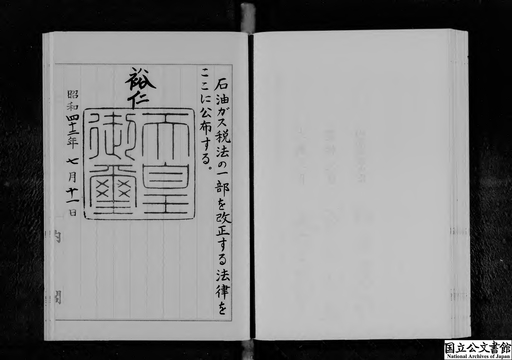 石油ガス税法の一部を改正する法律を
ここに公布する。
裕仁
天皇
御璽
昭和四十二年七月十一日
内閣
国立公文書館
National Archives of Japan